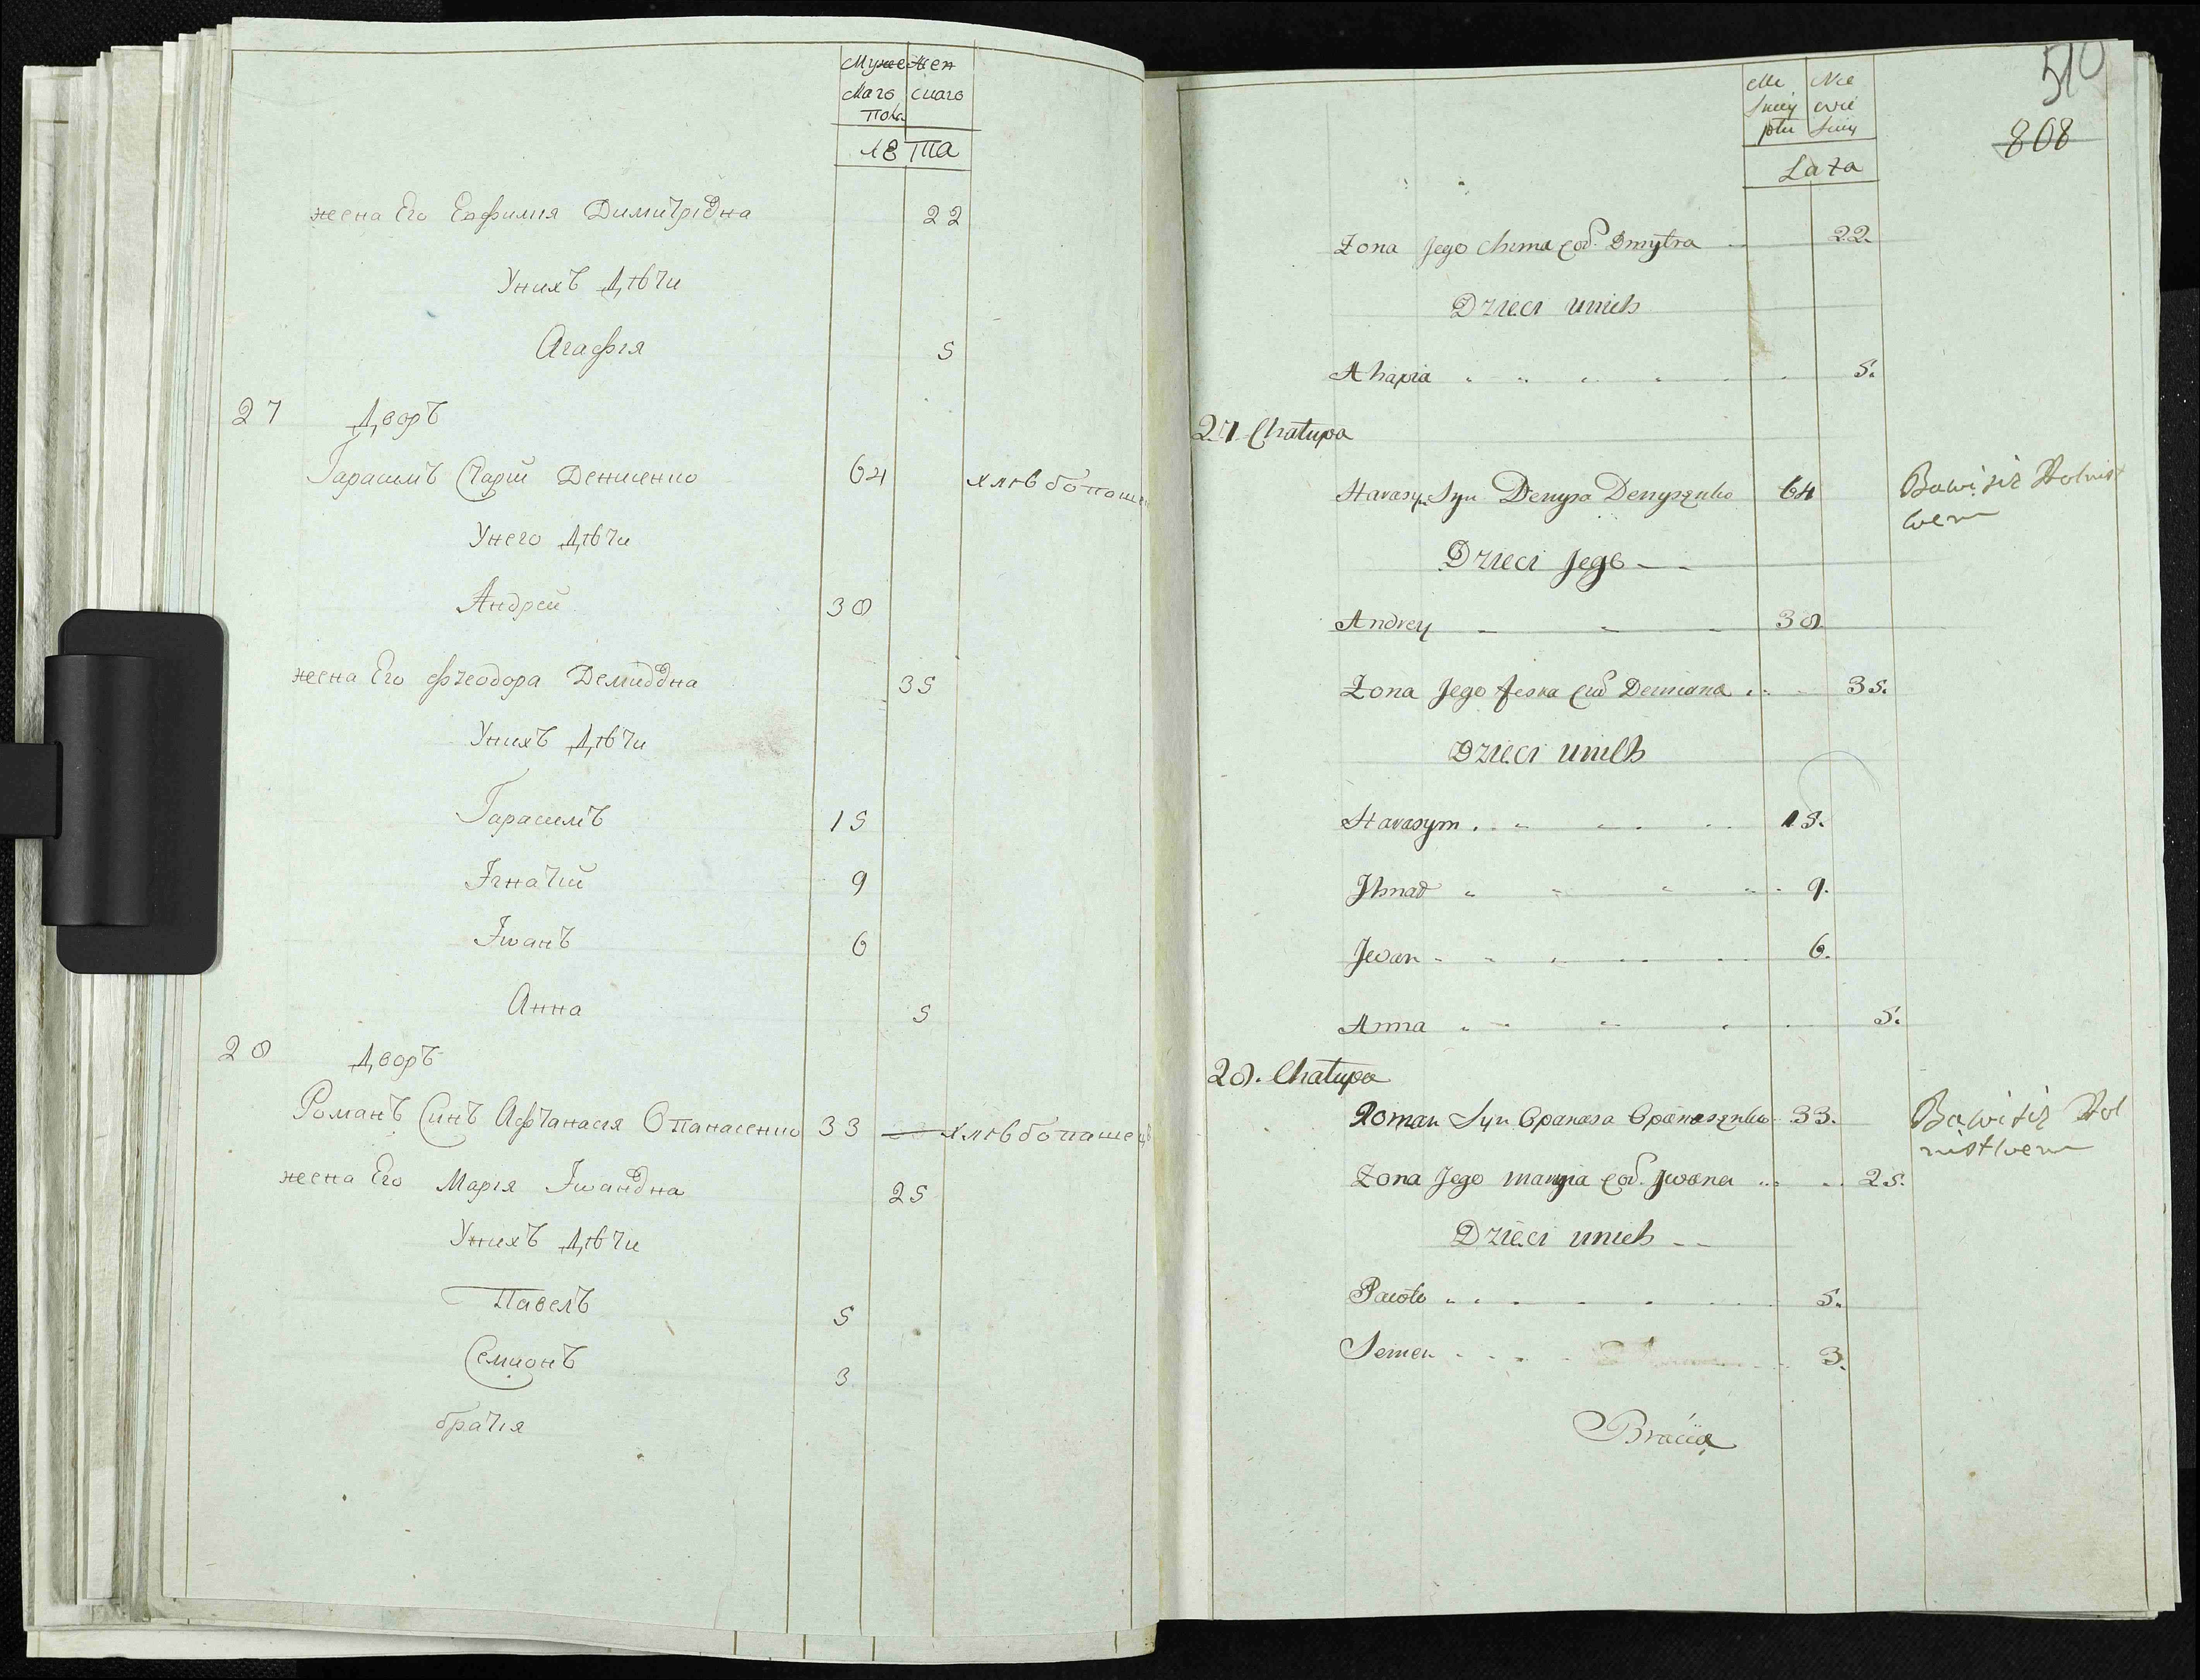 Муже Жен
скаго скаго
Пола
лѣта
жена Его Евфимія Димитріевна 22
Унихъ Дѣти
Агафія 5
27 Дворъ
Гарасимъ Старій Денисенко 64 хлѣбопаше
Унего Дѣти
Андрей 38
жена Его Фтеодора Демидовна 35
Унихъ Дѣти
Гарасимъ 15
Ігнатій 9
Іванъ 6
Анна 5
28 Дворъ
Романъ Синъ Афтанасія Опанасенко 33 хлѣбопашец
жена Его Марія Івановна 25
Унихъ Дѣти
Павелъ 5
Семионъ 3
братія
510
808
Mę Nie
skiey wie
płci skiey
Lata
Zona Jego Chima cod. Dmytra 22.
Dzieci unich
Ahapia 5.
27. Chałupa
Harasym Syn Denysa Denysenko 64 Bawi się Rolnict
wem
Dzieci Jego
Andrey 38.
Zona Jego Feska cod Demiana 35.
Dzieci unich
Harasym 15.
Jhnat 9.
Jwan 6.
Anna 5.
28. Chałupa
Roman Syn Opanasa Opanasenko 33. Bawi się Rol
nistwem
Zona Jego Maryia cod. Jwana 25.
Dzieci unich
Pawło 5.
Semen 3.
Bracia